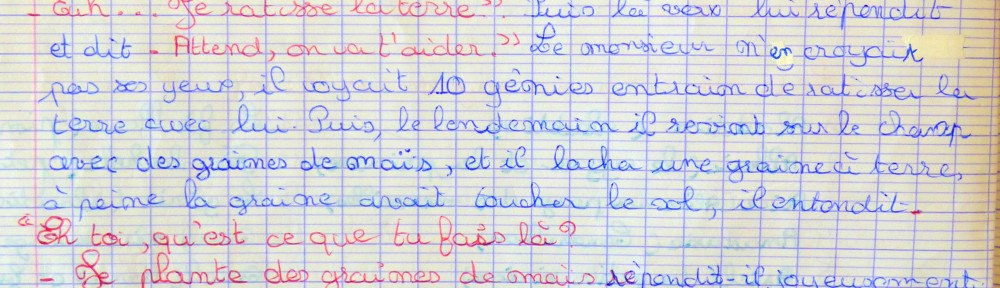 - Euh... Je ratisse la terre". Puis la voix lui répondit
et dit - Attend, on va t'aider." Le monsieur n'en croyait
pas ses yeux, il voyait 10 génies entraion de ratisser la
terre avec lui. Puis, le lendemain il revient sur le champ
avec des graines de maïs, et il lacha une graine à terre,
à peine la graine avait toucher le sol, il entendit -
"Eh toi, qu'est ce que tu fais là?
- Je plante des graines de maïs répondit-il joyeusement.